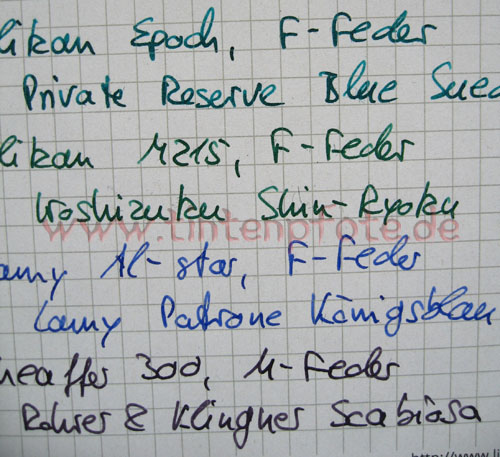 likan Epoch, F-Feder
Private Reserve Blue Sued
likan M215, F-Feder
Iroshizuku Shin-Ryoku
www.tintenpfote.de
amy Al-star, F-Feder
Lamy Patrone Königsblau
heaffer 300, M-Feder
Rohrer & Klingner Scabiosa
http://www.li